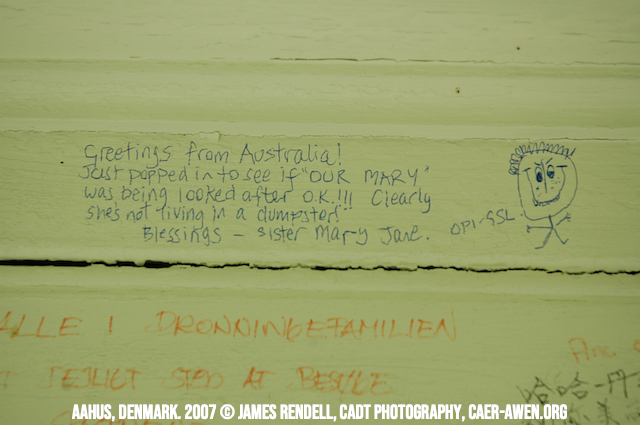 Greetings from Australia!
Just popped in to see if "OUR MARY"
was being looked after O.K.!!! Clearly
she's not living in a dumpster!
Blessings - sister Mary Jane.
OPI-SSL
ALLE I DRONNINGEFAMILIEN
STED AT BESØGE
哈哈
AAHUS, DENMARK. 2007 © JAMES RENDELL, CADT PHOTOGRAPHY, CAER-AWEN.ORG